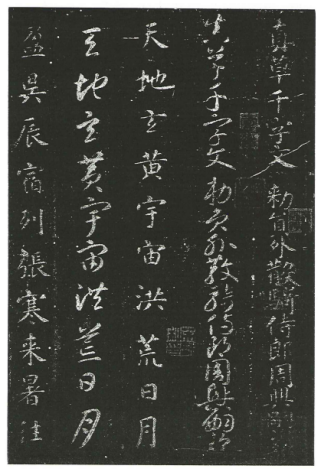 真草千字文 勑員外散騎侍郎周興嗣次韻
真草千字文 勑員外散騎侍郎周興嗣次韻
天地玄黄宇宙洪荒日月
天地玄黄宇宙洪荒日月
盈昃辰宿列張寒来暑往